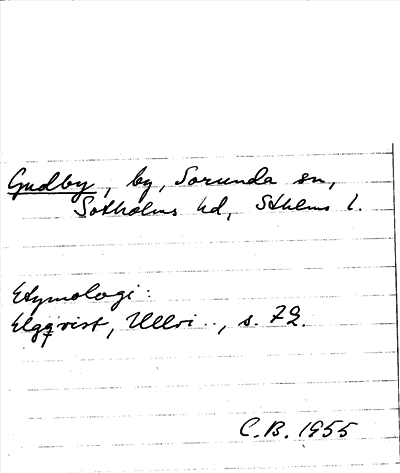 Gudby, by, Sorunda sn,
Sotholms hd, Sthlms l.
Etymologi:
Elgqvist, Ullvi.., s. 72.
C.B. 1955